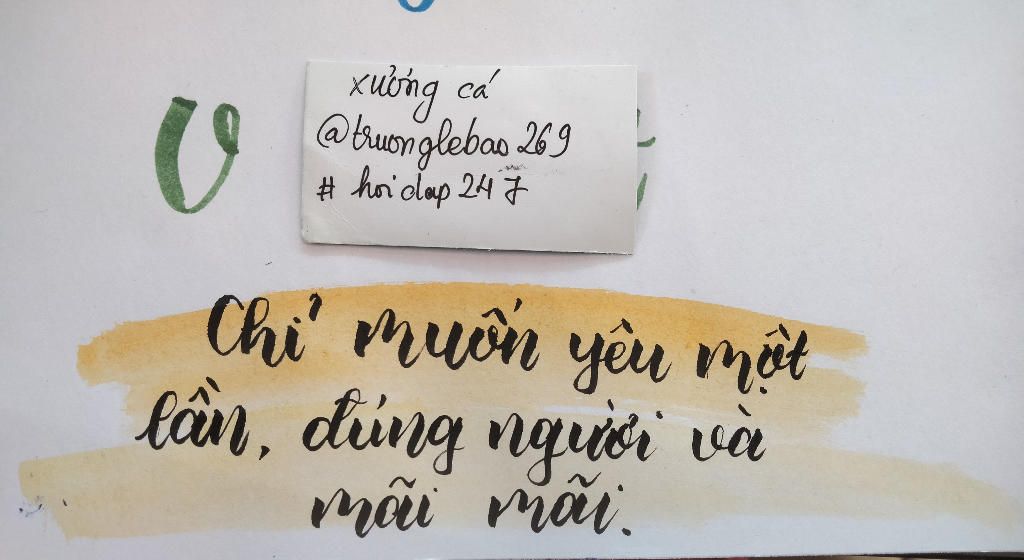 xưởng cá
@truonglebao269
# hoidap247
Chỉ muốn yêu một
lần, đúng người và
mãi mãi.